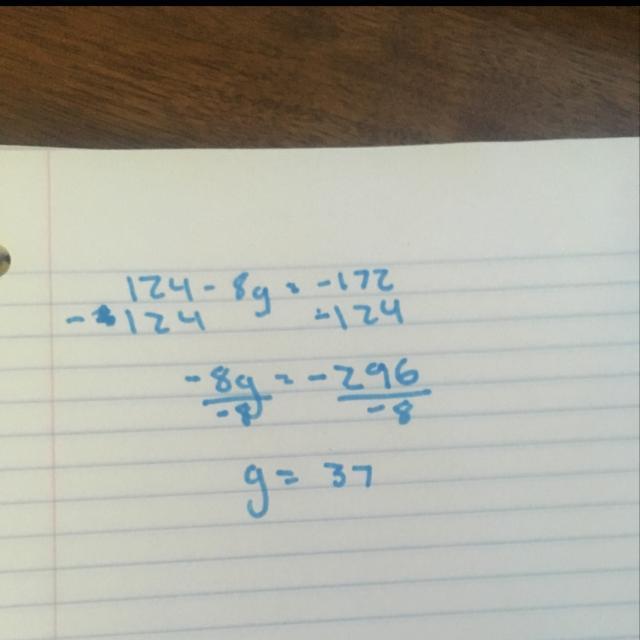 124 - 8g = -172
-124 -124
-8g = -296
-8 -8
g = 37